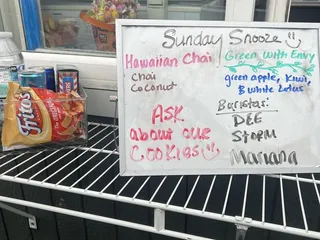 Sunday Snooze
Hawaiian Chai
Chai
Coconut
Green With Envy
green apple, kiwi,
& white Lotus
ASK
about our
COOKIES
Baristas:
DEE
STORM
Mariana
Fritos